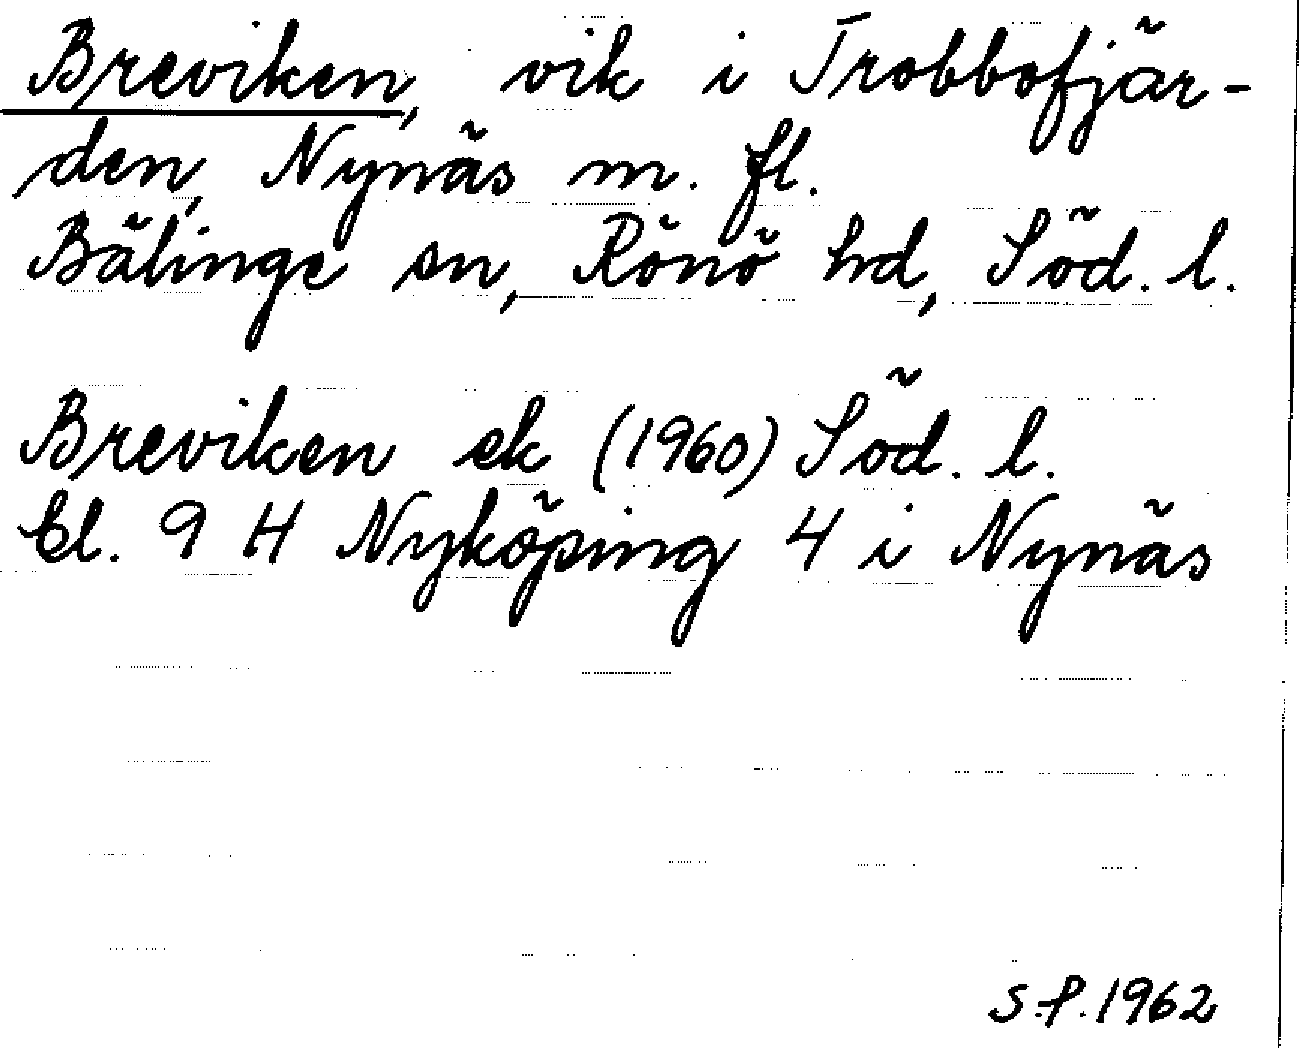 Breviken, vik i Trobbofjär-
den, Nynäs m. fl.
Bälinge sn, Rönö hd, Söd. l.
Breviken ek (1960) Söd. l.
Bl. 9 H Nyköping 4 i Nynäs
S.P. 1962